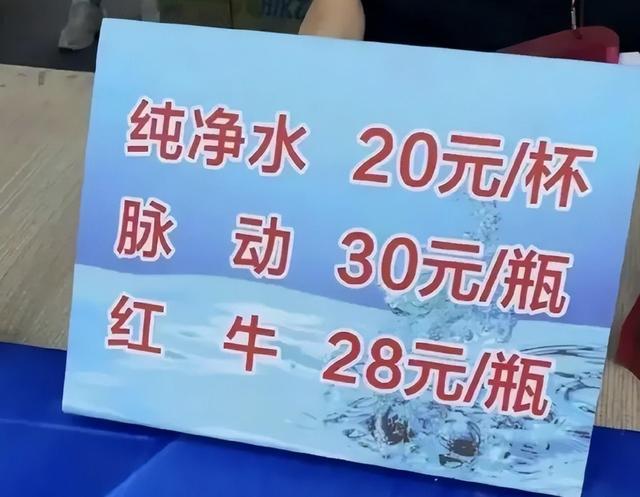 纯净水 20元/杯
脉动 30元/瓶
红牛 28元/瓶